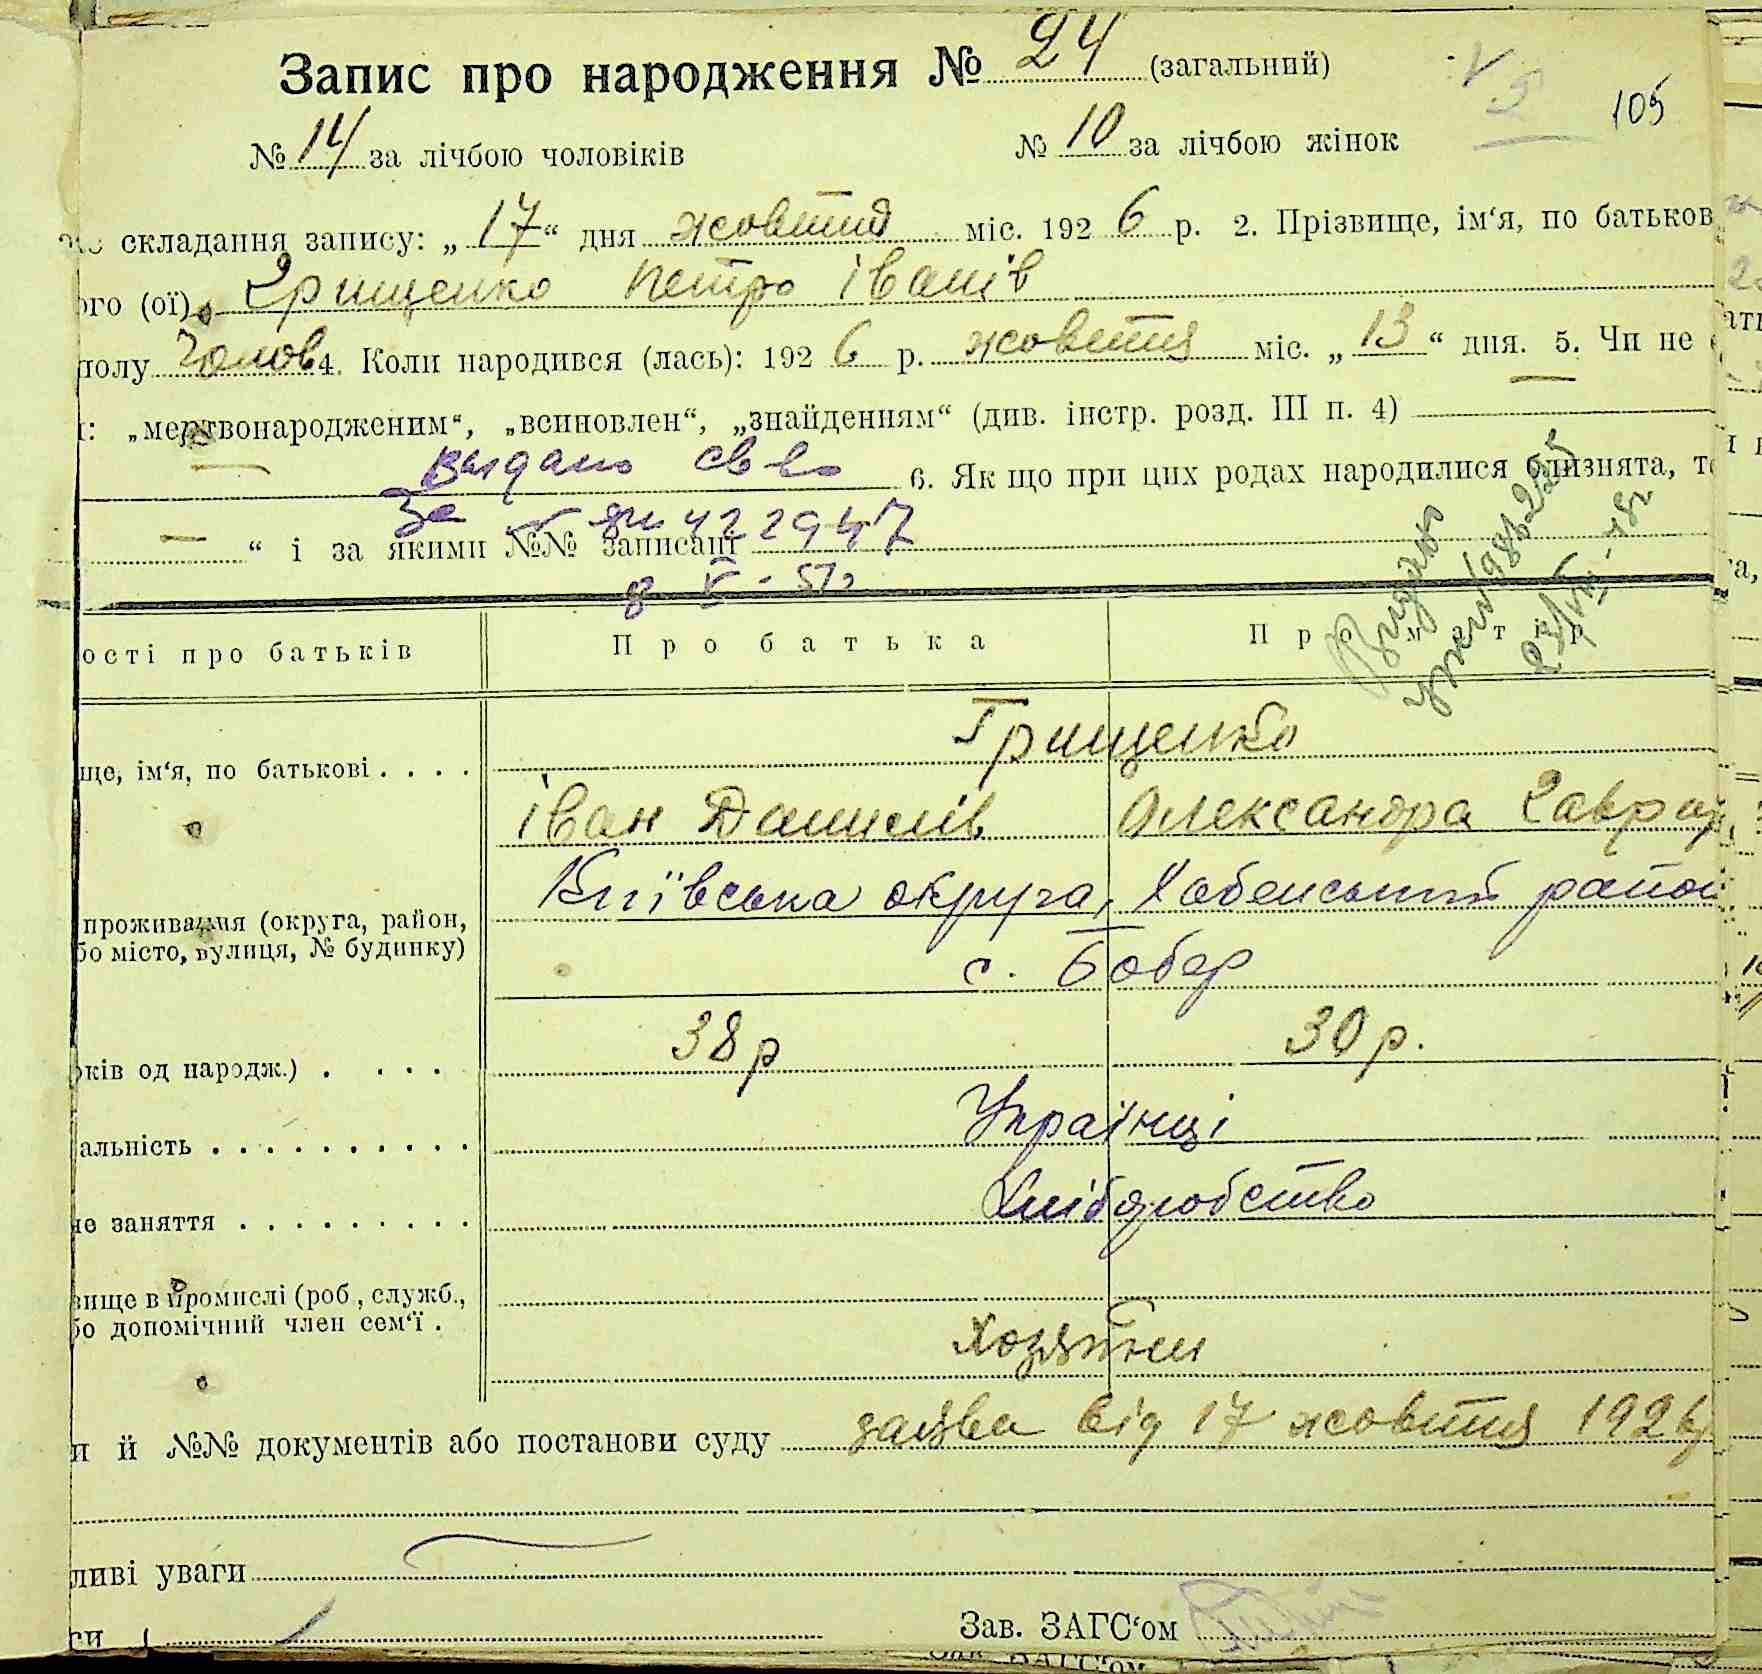 Запис про народження № 24 (загальний)
105
№ 14 за лічбою чоловіків № 10 за лічбою жінок
складання запису: „ 17 “ дня жовтня міс. 192 6 р. 2. Прізвище, ім‘я, по батьков
ого (ої) Грищенко Петро Іванів
полу Чолов 4. Коли народився (лась): 192 6 р. жовтня міс. „ 13 “ дня. 5. Чи не
: „мертвонародженим“, „всиновлен“, „знайденням“ (див. інстр. розд. III п. 4)
выдано св во 6. Як що при цих родах народилися близнята, т
“ і за якими №№ записані
за 422947
8 V - 51г
ості про батьків Про батька Про матір
Грищенко
ще, ім‘я, по батькові . . . .
Іван Данилів Олександра Гавр
Київська округа, Хабенський район
проживання (округа, район,
бо місто, вулиця, № будинку)
с. Бобер
38 р 30 р.
оків од народж.) . . . .
Українці
альність . . . . . . . . . .
Хліборобство
не заняття . . . . . . . . .
вище в промислі (роб., служб.,
бо допомічний член сем‘ї .
Хозяїни
и й №№ документів або постанови суду заява від 17 жовтня 1926р
ливі уваги
Зав. ЗАГС‘ом